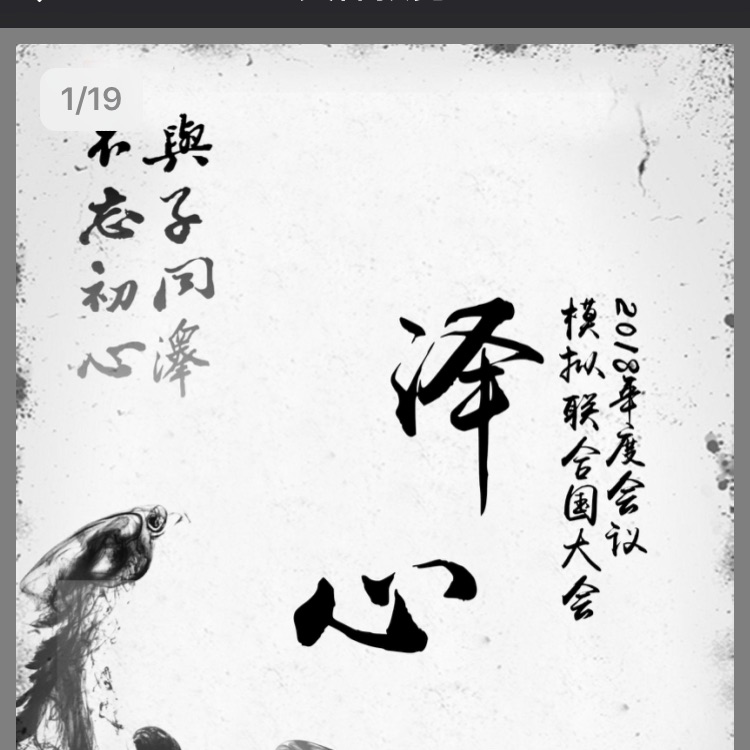 1/19
與子同澤
不忘初心
泽心
2018年度会议
模拟联合国大会